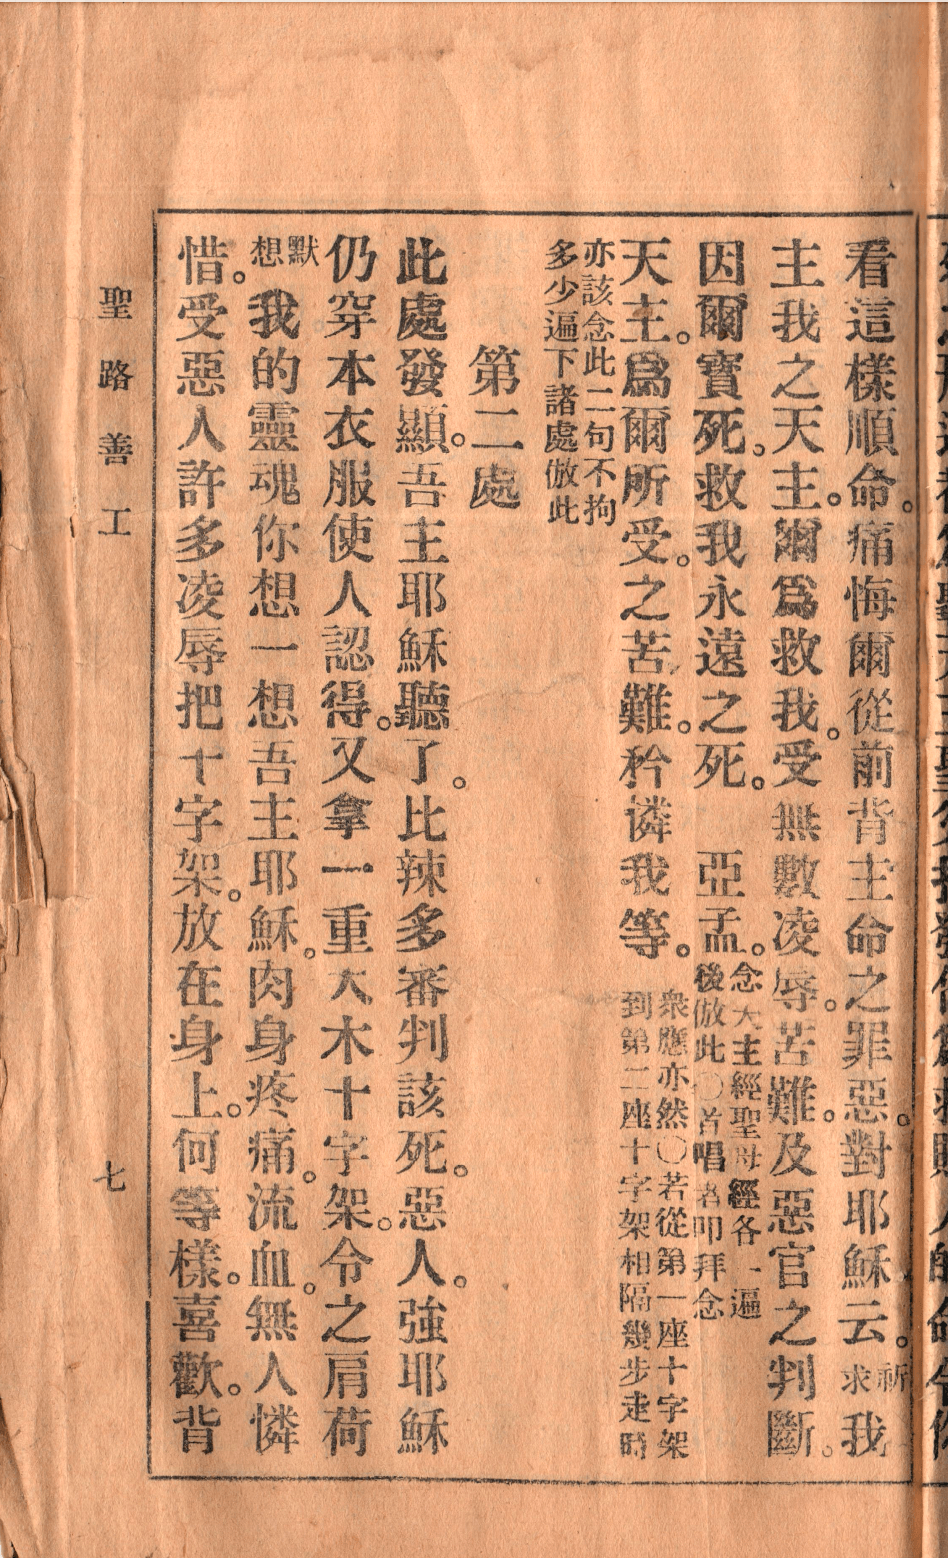 看這樣順命。痛悔爾從前背主命之罪惡。對耶穌云。祈求我
主我之天主。爾爲救我。受無數凌辱。苦難。及惡官之判斷。
因爾寶死。救我永遠之死。 亞孟。念天主經聖母經各一遍後倣此〇首唱者叩拜念
天主。爲爾所受。之苦難。矜憐我等。衆應亦然〇若從第一座十字架到第二座十字架相隔幾步走時
亦該念此二句不拘多少遍下諸處倣此
第二處
此處發顯。吾主耶穌聽了。比辣多審判該死。惡人。強耶穌
仍穿本衣服使人認得。又拿一重大木十字架。令之肩荷
默想我的靈魂你想一想吾主耶穌。肉身疼痛。流血。無人憐
惜。受惡人許多凌辱把十字架。放在身上。何等樣。喜歡。背
聖路善工
七